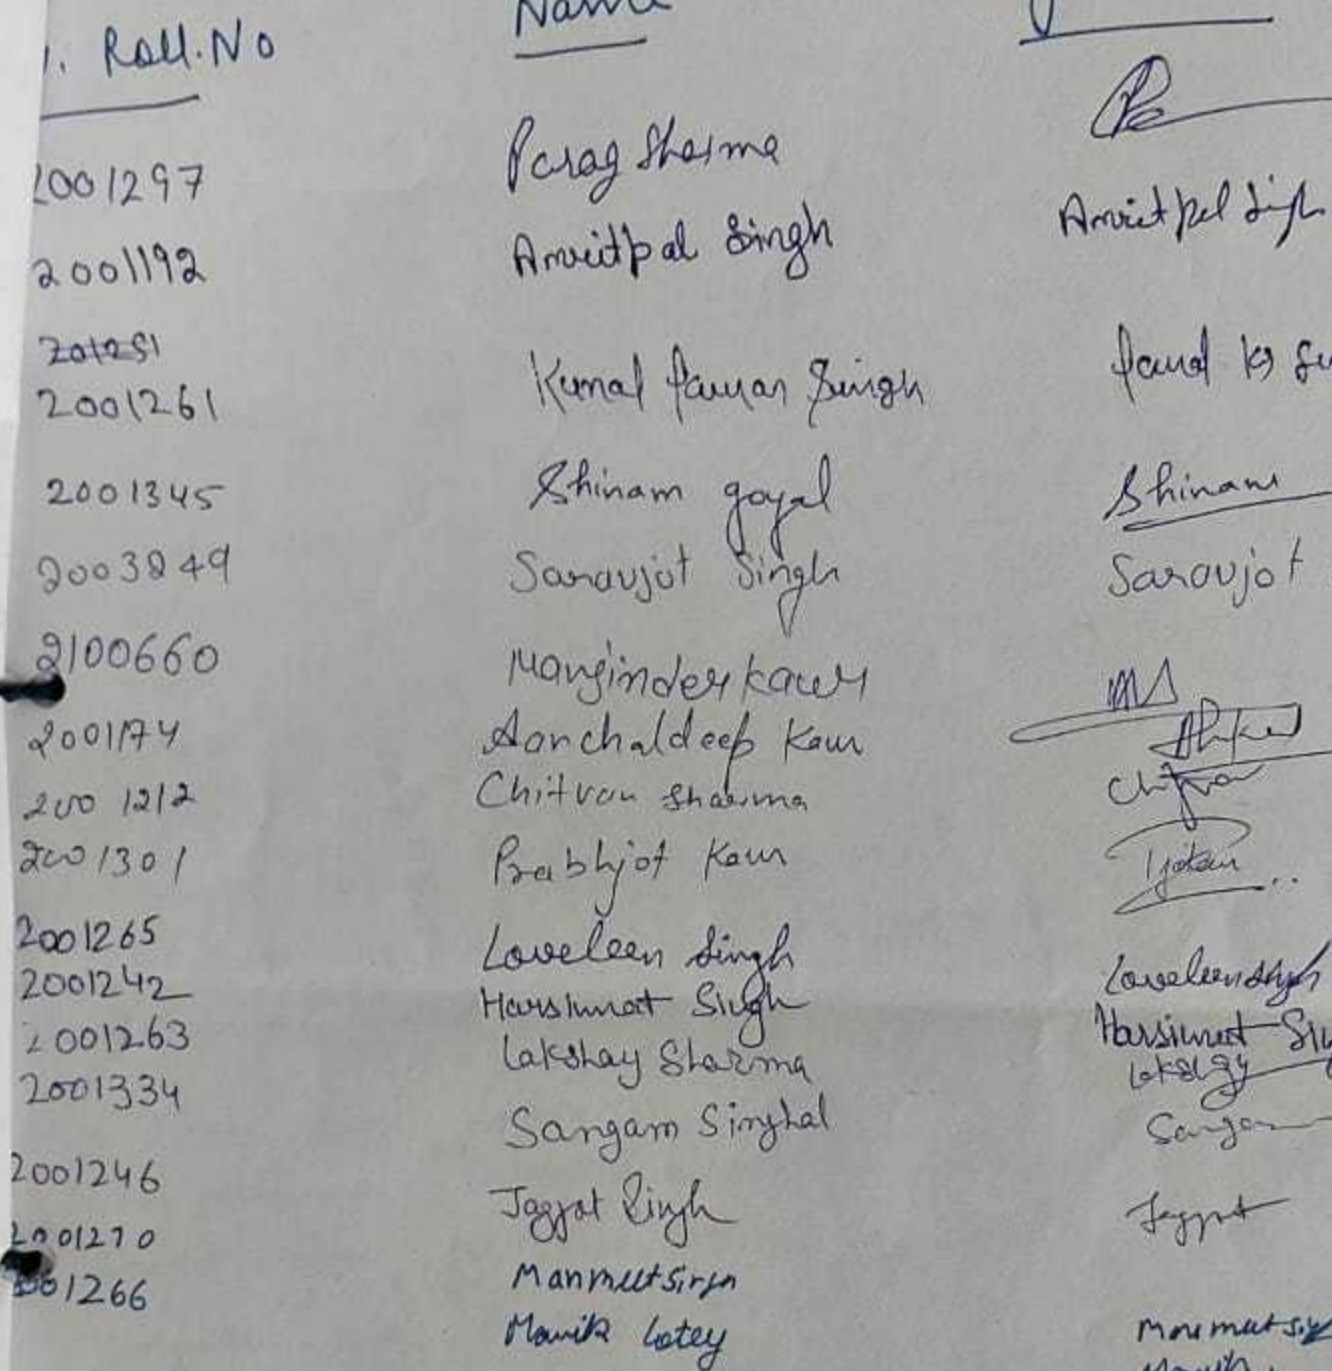 Roll.No Name
2001297 Parag Sharma
2001192 Amritpal Singh Amritpal Singh
201251
2001261 Kunal Pawan Singh
2001345 Shinam goyal Shinam
2003849 Saravjot Singh Saravjot
2100660 Manjinder kaur
2001174 Aanchaldeep Kaur
2001212 Chitvan Sharma Chitvan
2001301 Prabhjot Kaur
2001265 Loveleen Singh Loveleen Singh
2001242 Harsimrat Singh Harsimrat
2001263 Lakshay Sharma Lakshay
2001334 Sangam Singhal Sangam
2001246 Jagjot Singh Jagjot
2001270 Manmeet Singh
001266 Manik Lotey Manmeet
Manik